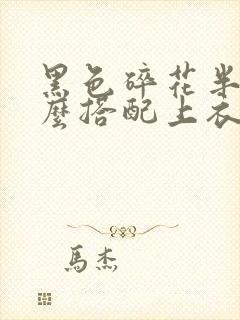 黑色碎花半
麽搭配上衣
馬杰